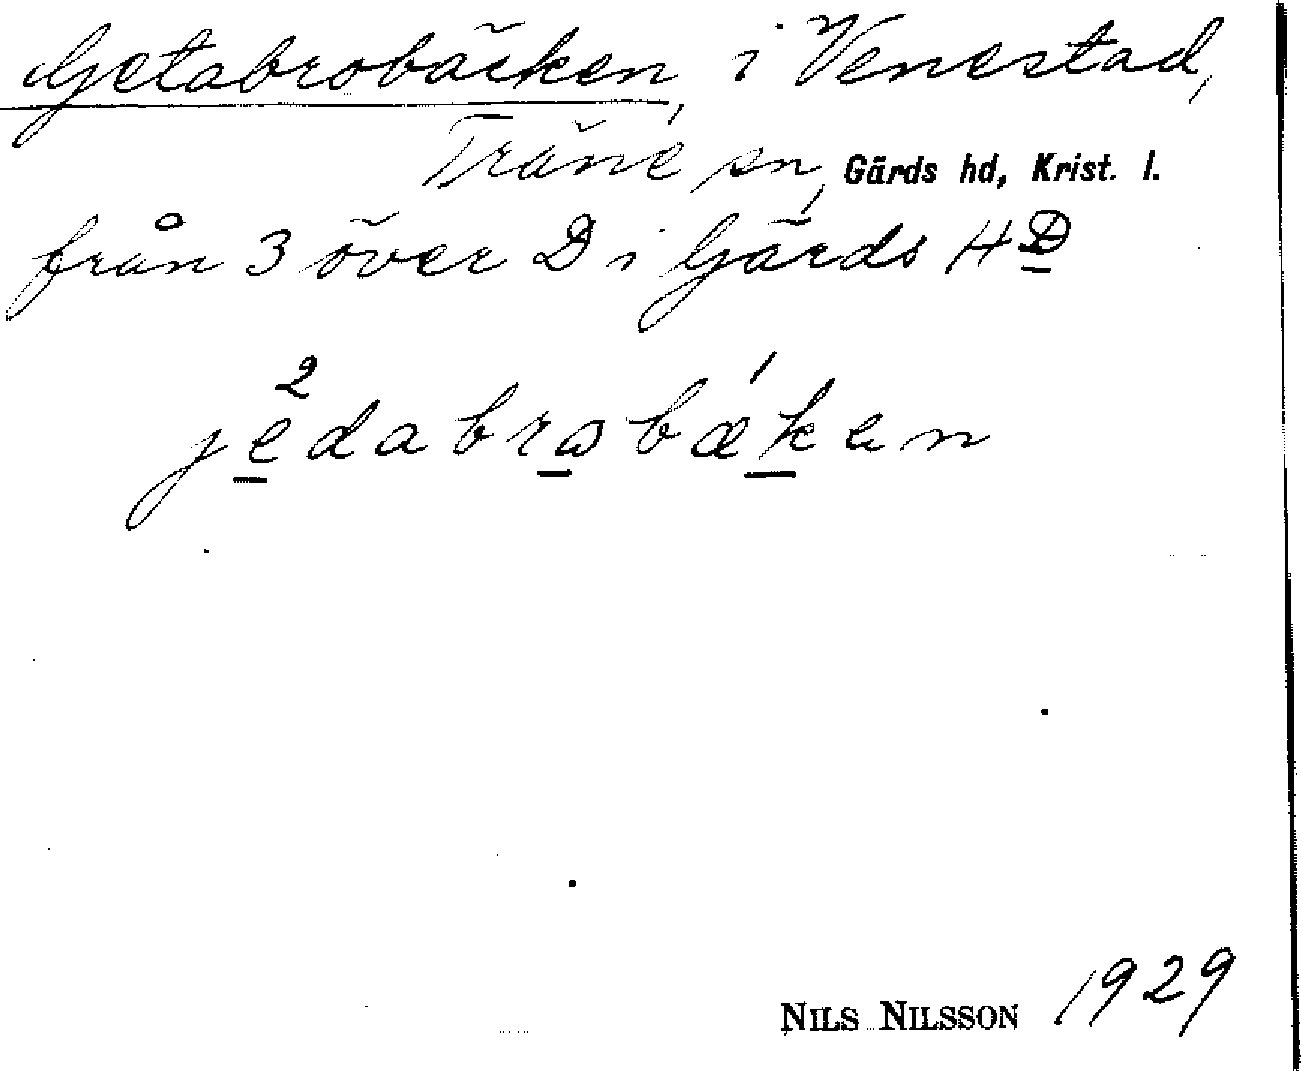 Getabrobäcken, i Venestad,
Träne sn, Gärds hd, Krist. l.
från 3 över D i Gärds HD
jedabrobækен
NILS NILSSON 1929